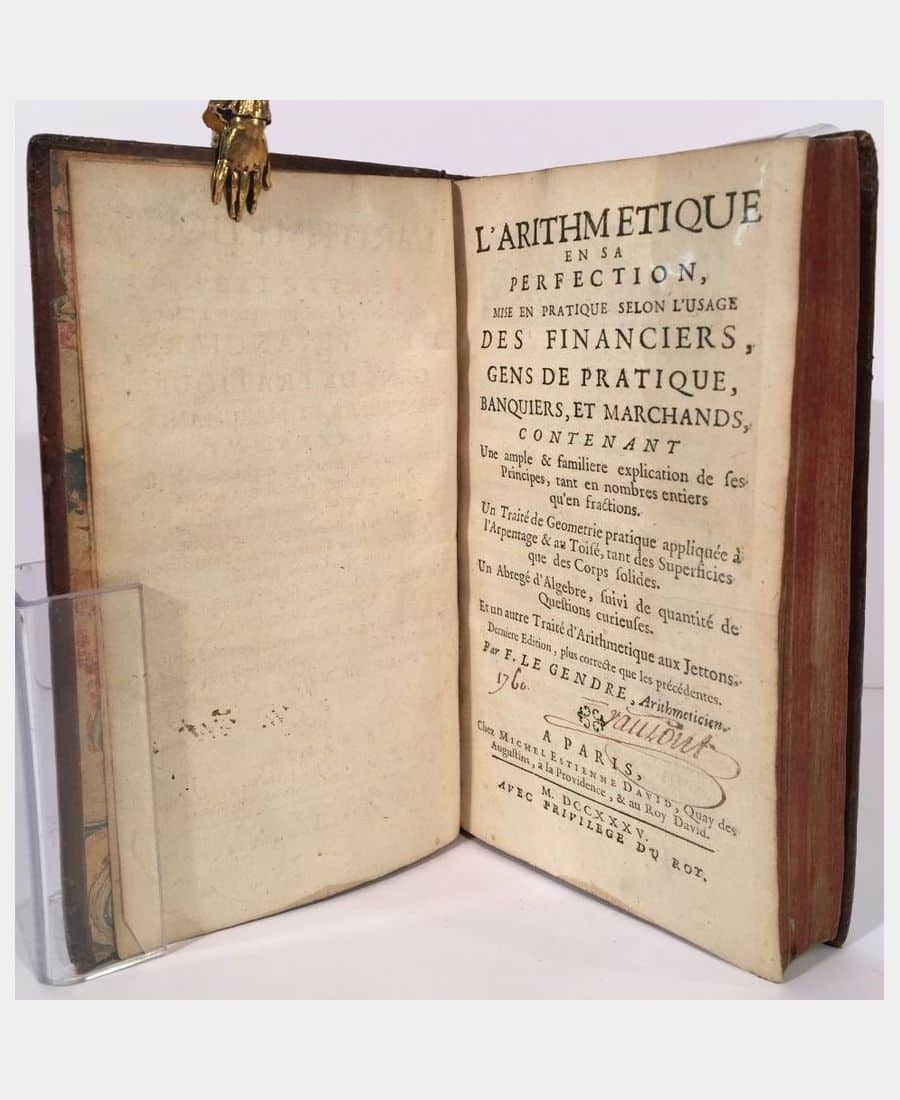 L'ARITHMETIQUE
EN SA
PERFECTION,
MISE EN PRATIQUE SELON L'USAGE
DES FINANCIERS,
GENS DE PRATIQUE,
BANQUIERS, ET MARCHANDS,
CONTENANT
Une ample & familiere explication de ſes
Principes, tant en nombres entiers
qu'en fractions.
Un Traité de Geometrie pratique appliquée à
l'Arpentage & au Toiſé, tant des Superficies
que des Corps ſolides.
Un Abregé d'Algebre, ſuivi de quantité de
Queſtions curieuſes.
Et un autre Traité d'Arithmetique aux Jettons.
Derniere Edition, plus correcte que les précédentes.
Par F. LE GENDRE, Arithmeticien.
1760.
A PARIS,
Chez MICHEL ESTIENNE DAVID, Quay des
Auguſtins, à la Providence, & au Roy David.
M. DCCXXXV.
AVEC PRIVILEGE DU ROY.